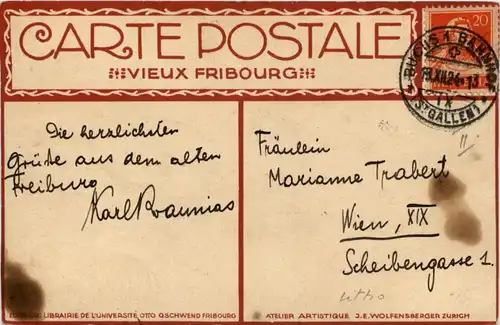 CARTE POSTALE
VIEUX FRIBOURG
20
BUCHS
19.XII.24.-13
IX
(ST GALLEN)
II.
Die herzlichsten
Grüße aus dem alten
Freiburg
Karl
Fräulein
Marianne Trabert
Wien, XIX
Scheibengasse 1.
Litho
LIBRAIRIE DE L'UNIVERSITÉ OTTO GSCHWEND FRIBOURG
ATELIER ARTISTIQUE J.E.WOLFENSBERGER ZÜRICH